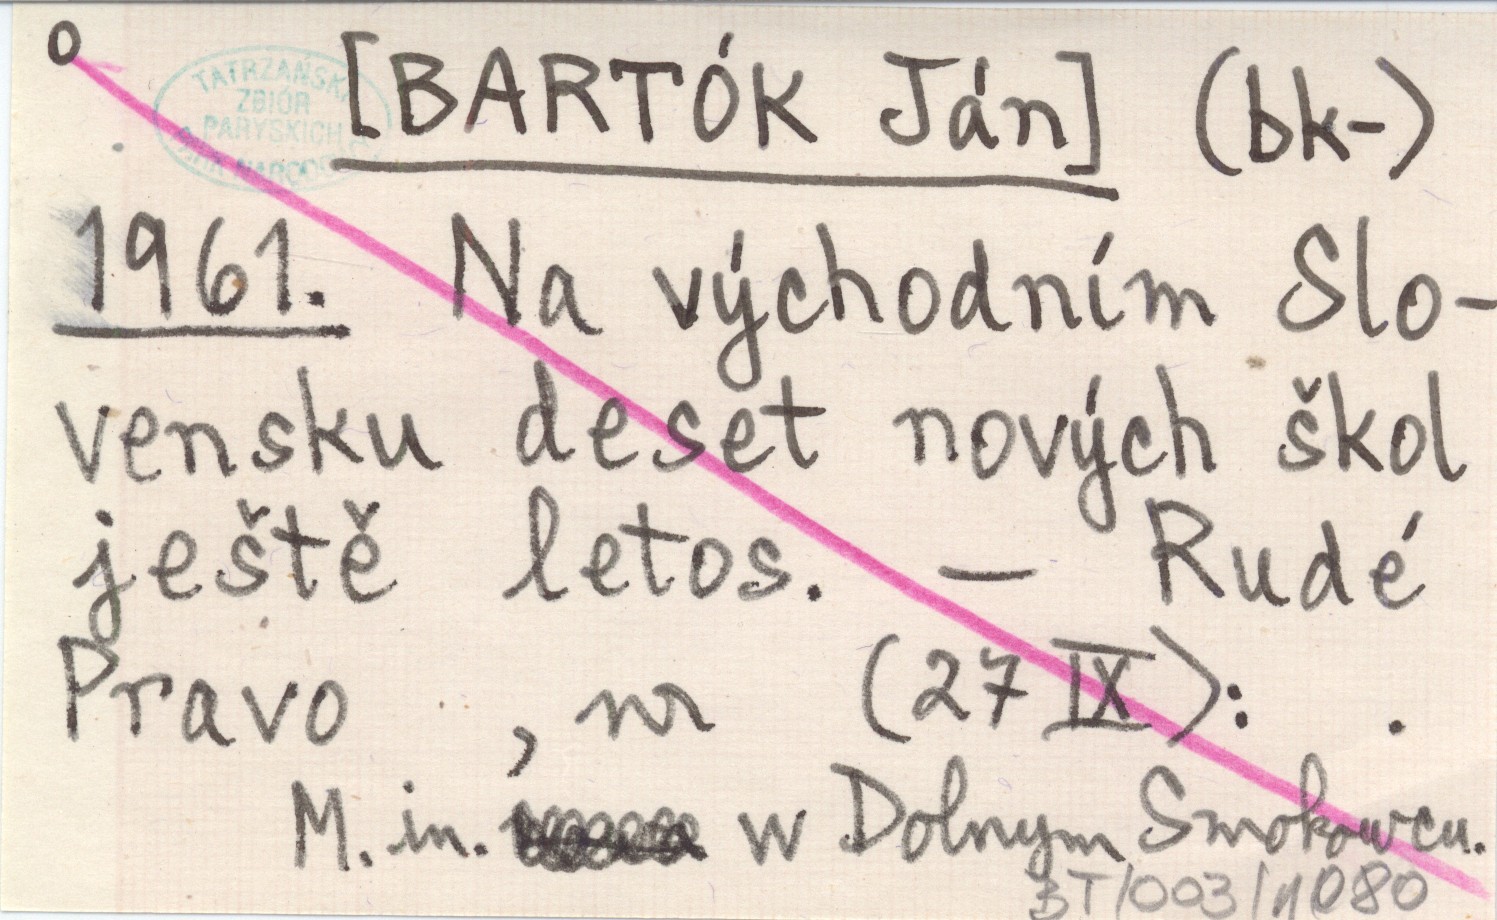 O
TATRZAŃSKI
ZBIÓR
PARYSKICH
[BARTÓK Ján] (bk-)
1961. Na východním Slo-
vensku deset nových škol
ještě letos. — Rudé
Pravo , nr (27 IX): .
M. in. w Dolnym Smokowcu.
BT/003/1080